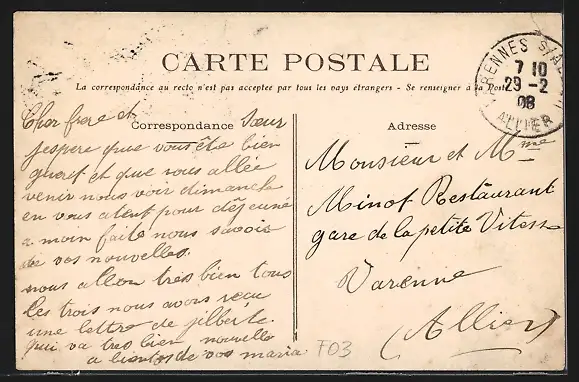 CARTE POSTALE
La correspondance au recto n'est pas acceptée par tous les pays étrangers - Se renseigner à la Poste
VARENNES S/ALLIER
7 10
29 -2
08
ALLIER
Correspondance
Adresse
Cher frere et Sœur
jespere que vous ête bien
guerit et que vous allée
venir nous voir dimanche
en vous atent pour déjeuné
a moin faite nous savoir
de vos nouvelles.
nous allon tres bien tous
les trois nous avons reçu
une lettre de jilberte
qui va tres bien nouvelle
a bientos de vos maria
Monsieur et Mme
Minot Restaurant
gare de la petite Vitesse
Varenne
(Allier)
F03